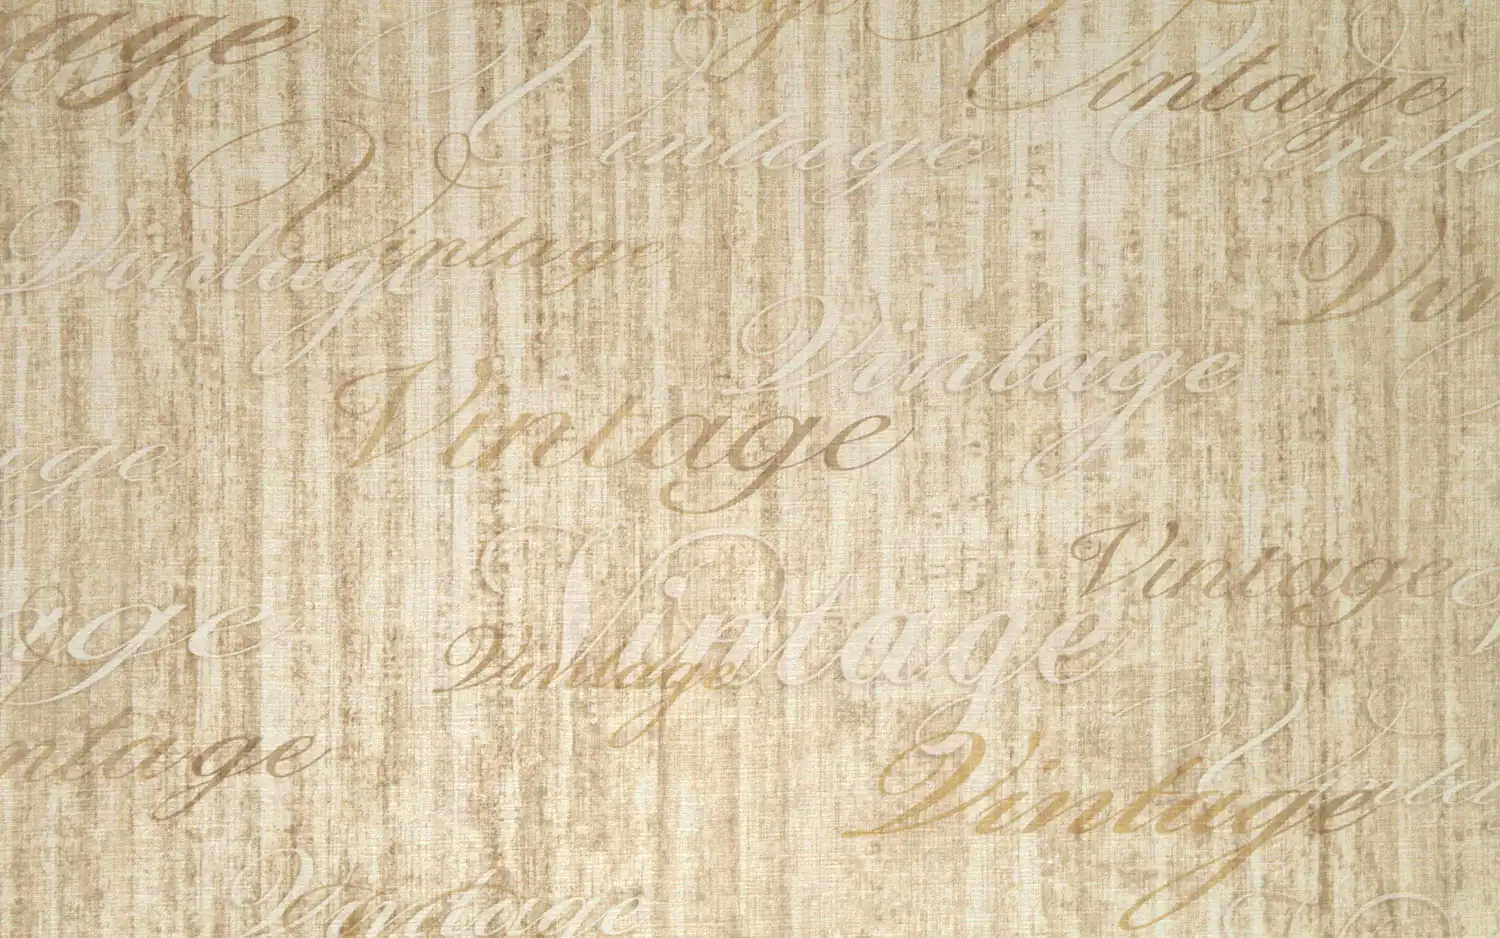 age
Vintage
Vintage
Vintage
Vintage
Vintage
Vintage
Vintage
age
Vintage
Vintage
Vintage
ntage
Vintage
Vintage